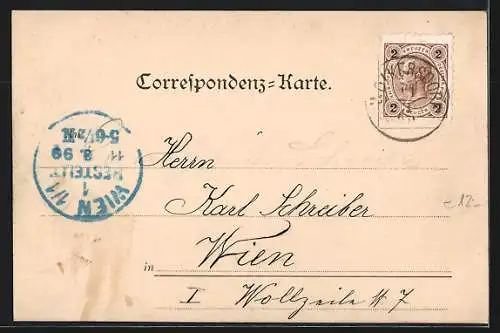 2 2
KREUZER
2 2
Correspondenz=Karte.
WIEN 1/1
1
BESTELLT
11 8.99
5-6½N
Herrn
Karl Schreiber
Wien
in
I Wollzeile N 7
12.-